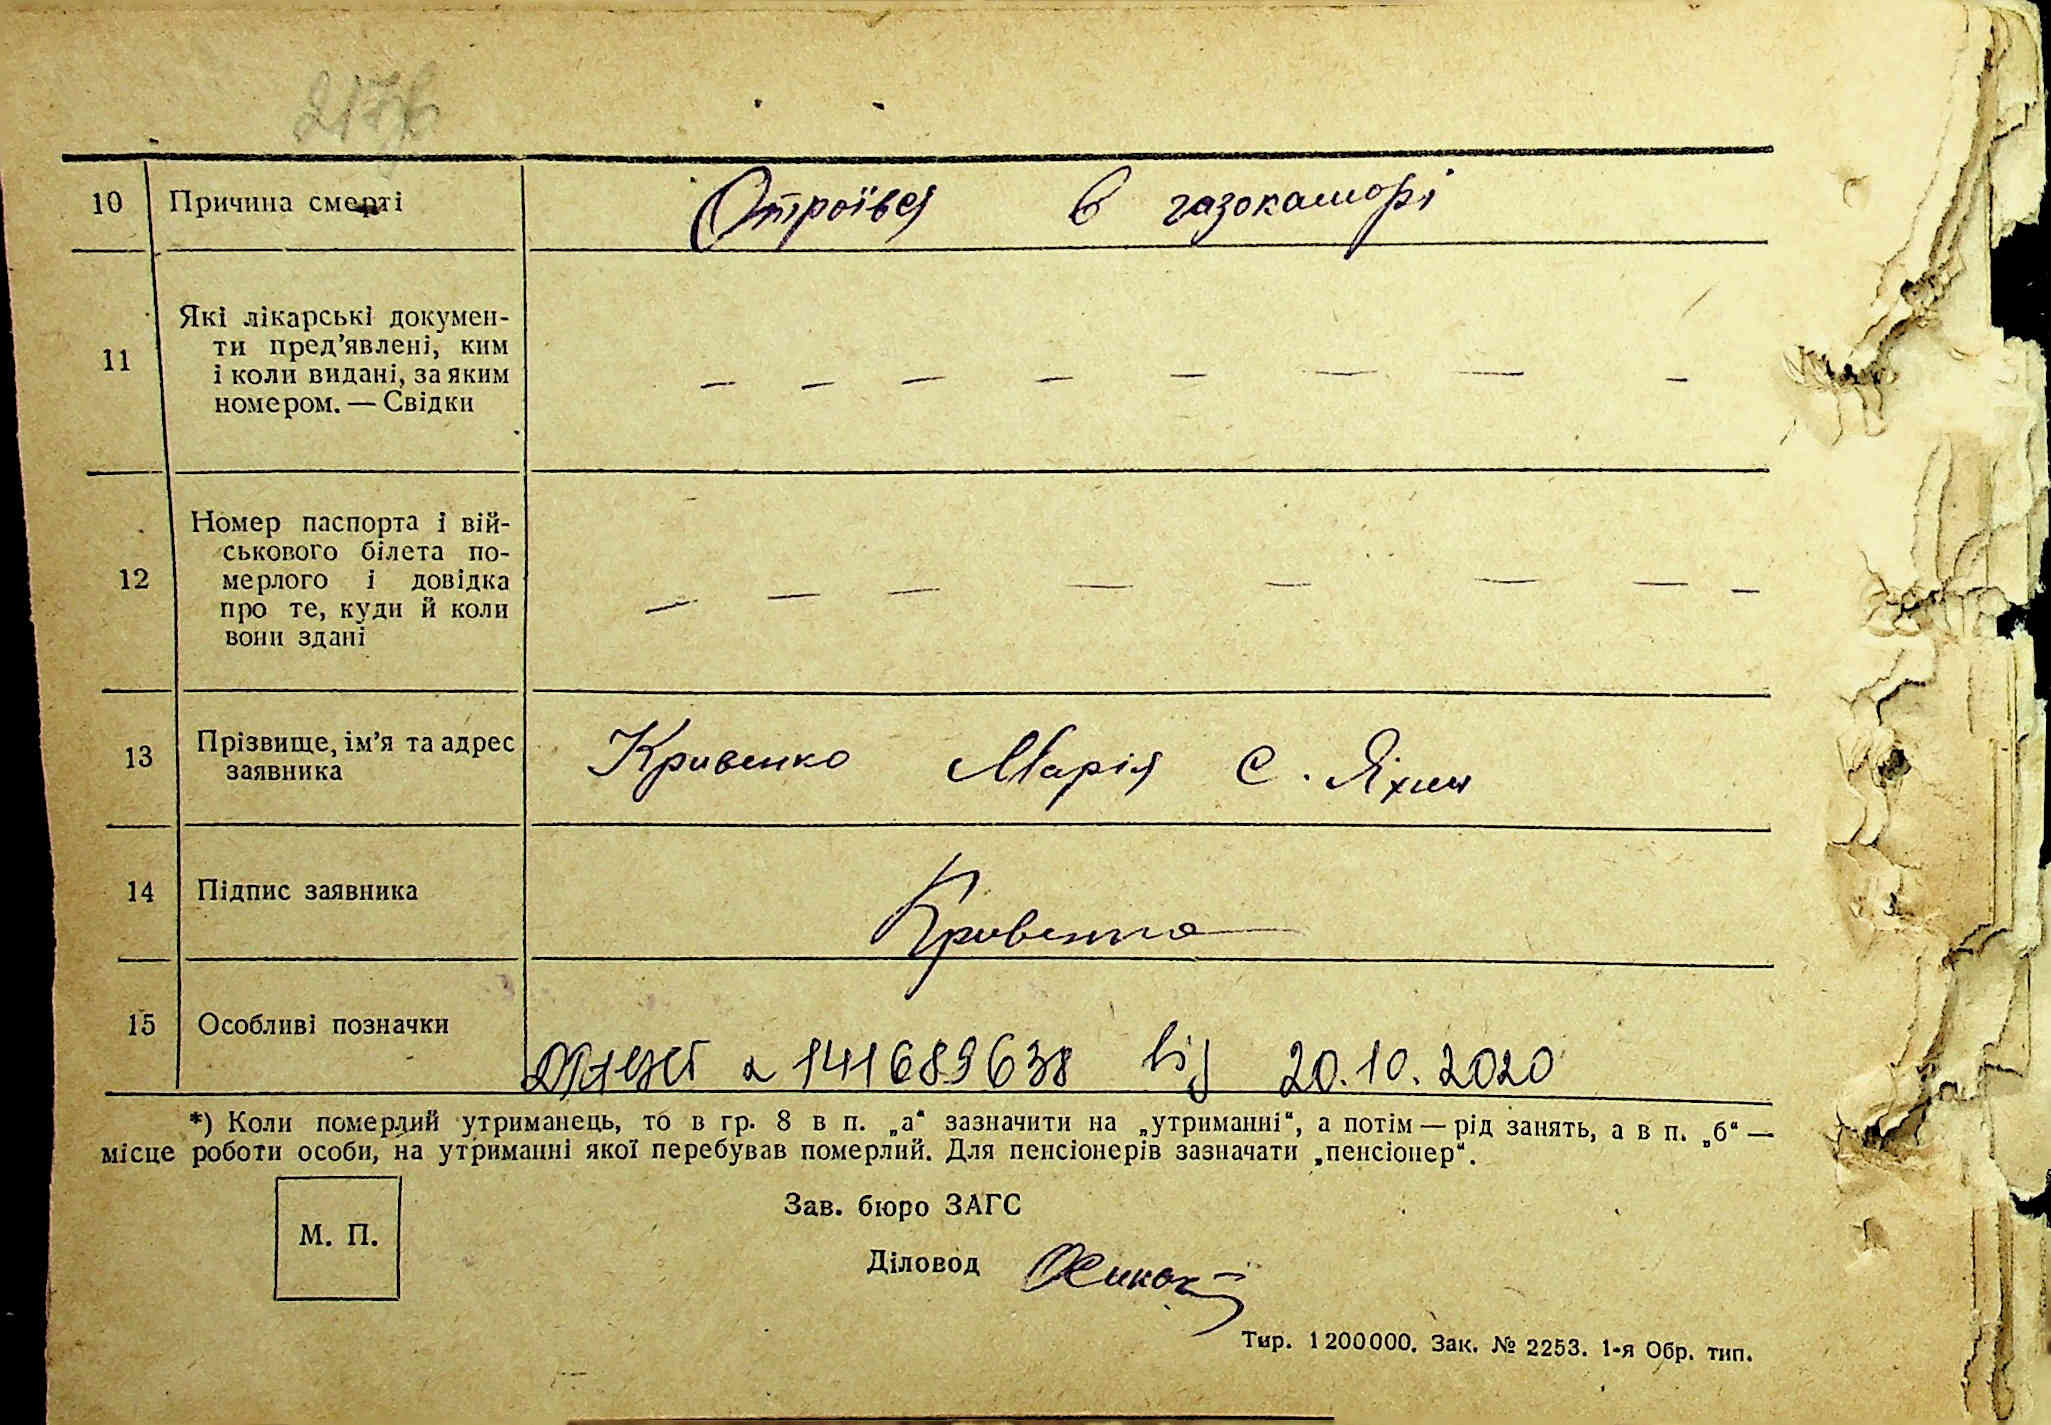 217
10 Причина смерті Отроївся в газокаморі
Які лікарські докумен-
ти пред’явлені, ким
11 і коли видані, за яким
номером. — Свідки — — — — — — — —
Номер паспорта і вій-
ськового білета по-
12 мерлого і довідка — — — — — — — —
про те, куди й коли
вони здані
13 Прізвище, ім’я та адрес Кривенко Марія С. Яхни
заявника
14 Підпис заявника Кривенко
15 Особливі позначки
а 141689638 від 20.10.2020
*) Коли померлий утриманець, то в гр. 8 в п. „а“ зазначити на „утриманні“, а потім — рід занять, а в п. „б“ —
місце роботи особи, на утриманні якої перебував померлий. Для пенсіонерів зазначати „пенсіонер“.
М. П.
Зав. бюро ЗАГС
Діловод
Тир. 1200000. Зак. № 2253. 1-я Обр. тип.